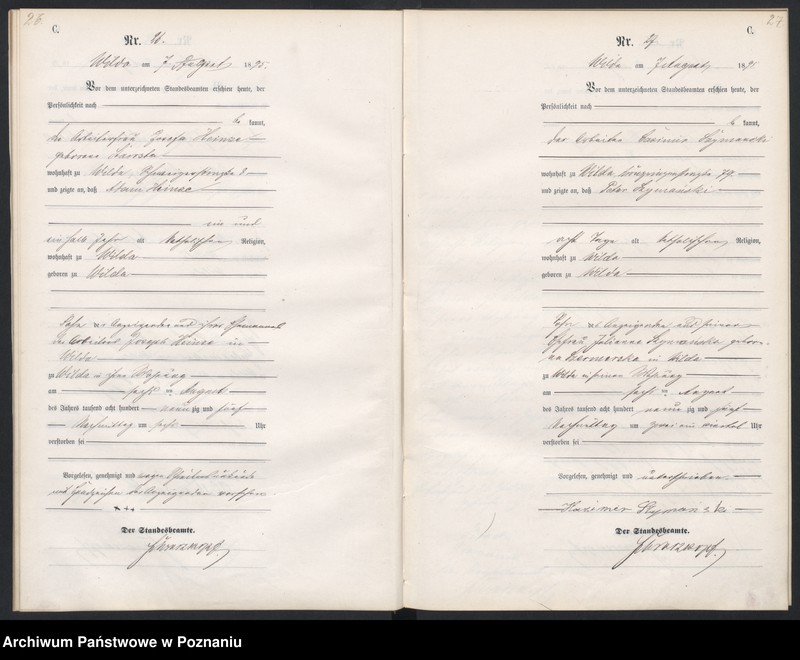 26
C.
Nr. 26.
Wilda am 7. August 1895.
Vor dem unterzeichneten Standesbeamten erschien heute, der
Persönlichkeit nach
be kannt,
die Arbeiterfrau Josefa Heinze
geborene
wohnhaft zu Wilda,
und zeigte an, daß Adam Heinze
ein und
ein halb Jahr alt katholischer Religion,
wohnhaft zu Wilda
geboren zu Wilda
Sohn der Anzeigenden und ihres Ehemannes
des Arbeiters Joseph Heinze in
Wilda
zu Wilda in ihrer Wohnung
am sechsten August
des Jahres tausend acht hundert neunzig und fünf
Nachmittag um sechs Uhr
verstorben sei
Vorgelesen, genehmigt und wegen
und Handzeichen der Anzeigenden versehen
+++
Der Standesbeamte.
27
C.
Nr. 27.
Wilda am 7. August 1895
Vor dem unterzeichneten Standesbeamten erschien heute, der
Persönlichkeit nach
be kannt,
der Arbeiter Casimir Szymanski
wohnhaft zu Wilda,
und zeigte an, daß Peter Szymański
acht Tage alt katholischer Religion,
wohnhaft zu Wilda
geboren zu Wilda
Sohn des Anzeigenden und seiner
Ehefrau Julianna Szymańska gebore-
ne in Wilda
zu Wilda in seiner Wohnung
am sechsten August
des Jahres tausend acht hundert neunzig und fünf
Nachmittag um zwei ein viertel Uhr
verstorben sei
Vorgelesen, genehmigt und unterschrieben.
Kazimier Szymański
Der Standesbeamte.
Archiwum Państwowe w Poznaniu